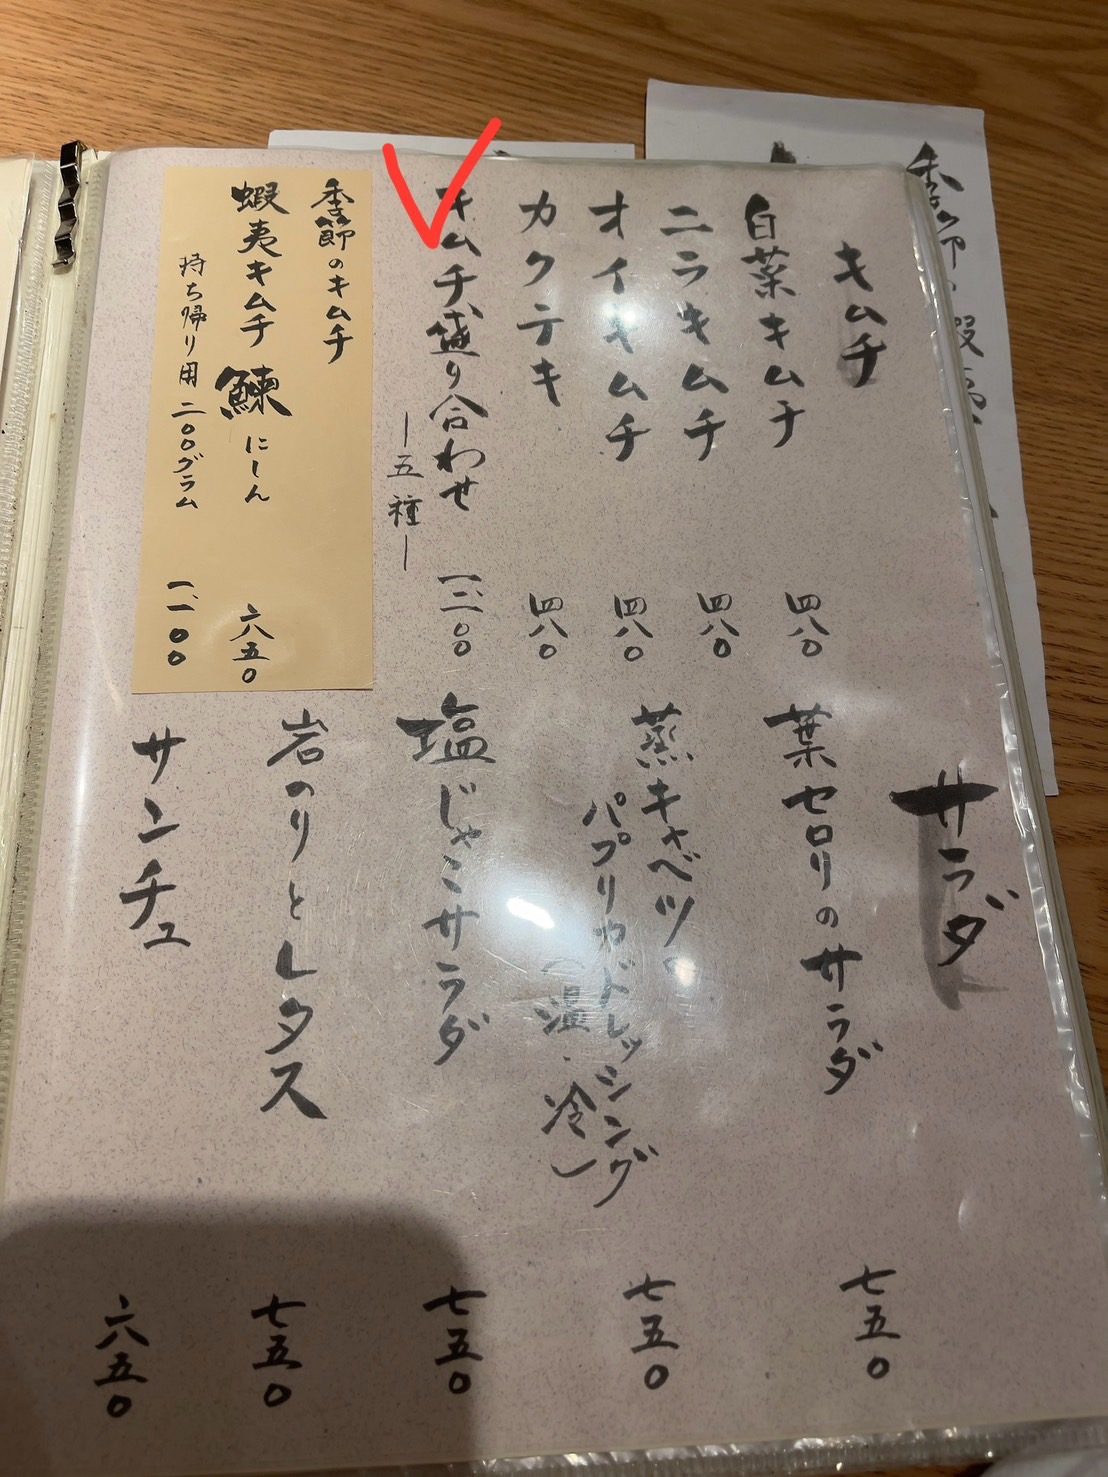 キムチ
白菜キムチ 四八〇
ニラキムチ 四八〇
オイキムチ 四八〇
カクテキ 四八〇
キムチ盛り合わせ
—五種—
一、二〇〇
季節のキムチ
蝦夷キムチ 鰊 にしん 六五〇
持ち帰り用 二〇〇グラム 一、一〇〇
サラダ
葉セロリのサラダ 七五〇
蒸キャベツの
パプリカドレッシング
(温・冷)
七五〇
塩じゃこサラダ 七五〇
岩のりとレタス 七五〇
サンチュ 六五〇
季節